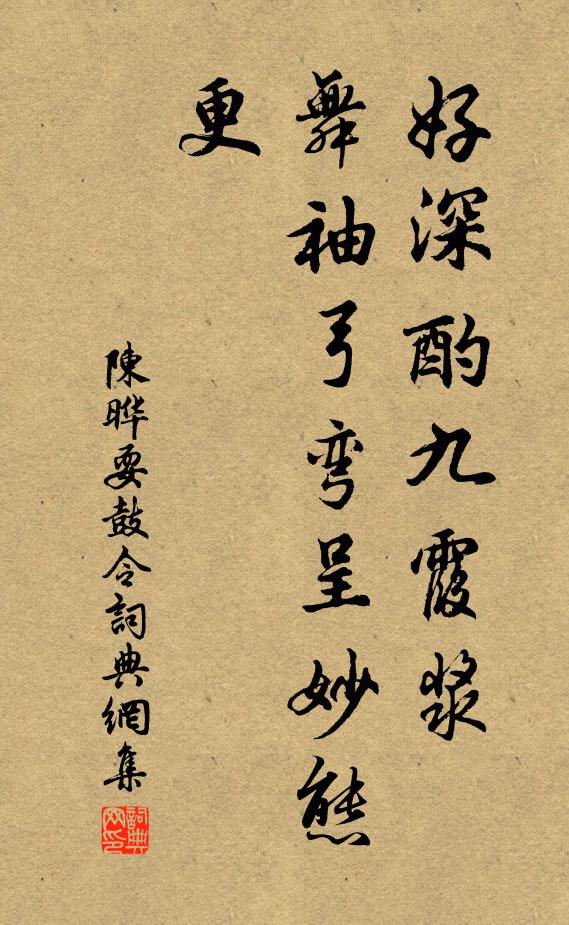 好深酌九霞漿
舞袖弓彎呈妙態
更
陳曄耍鼓令詞典網集
詞典網印